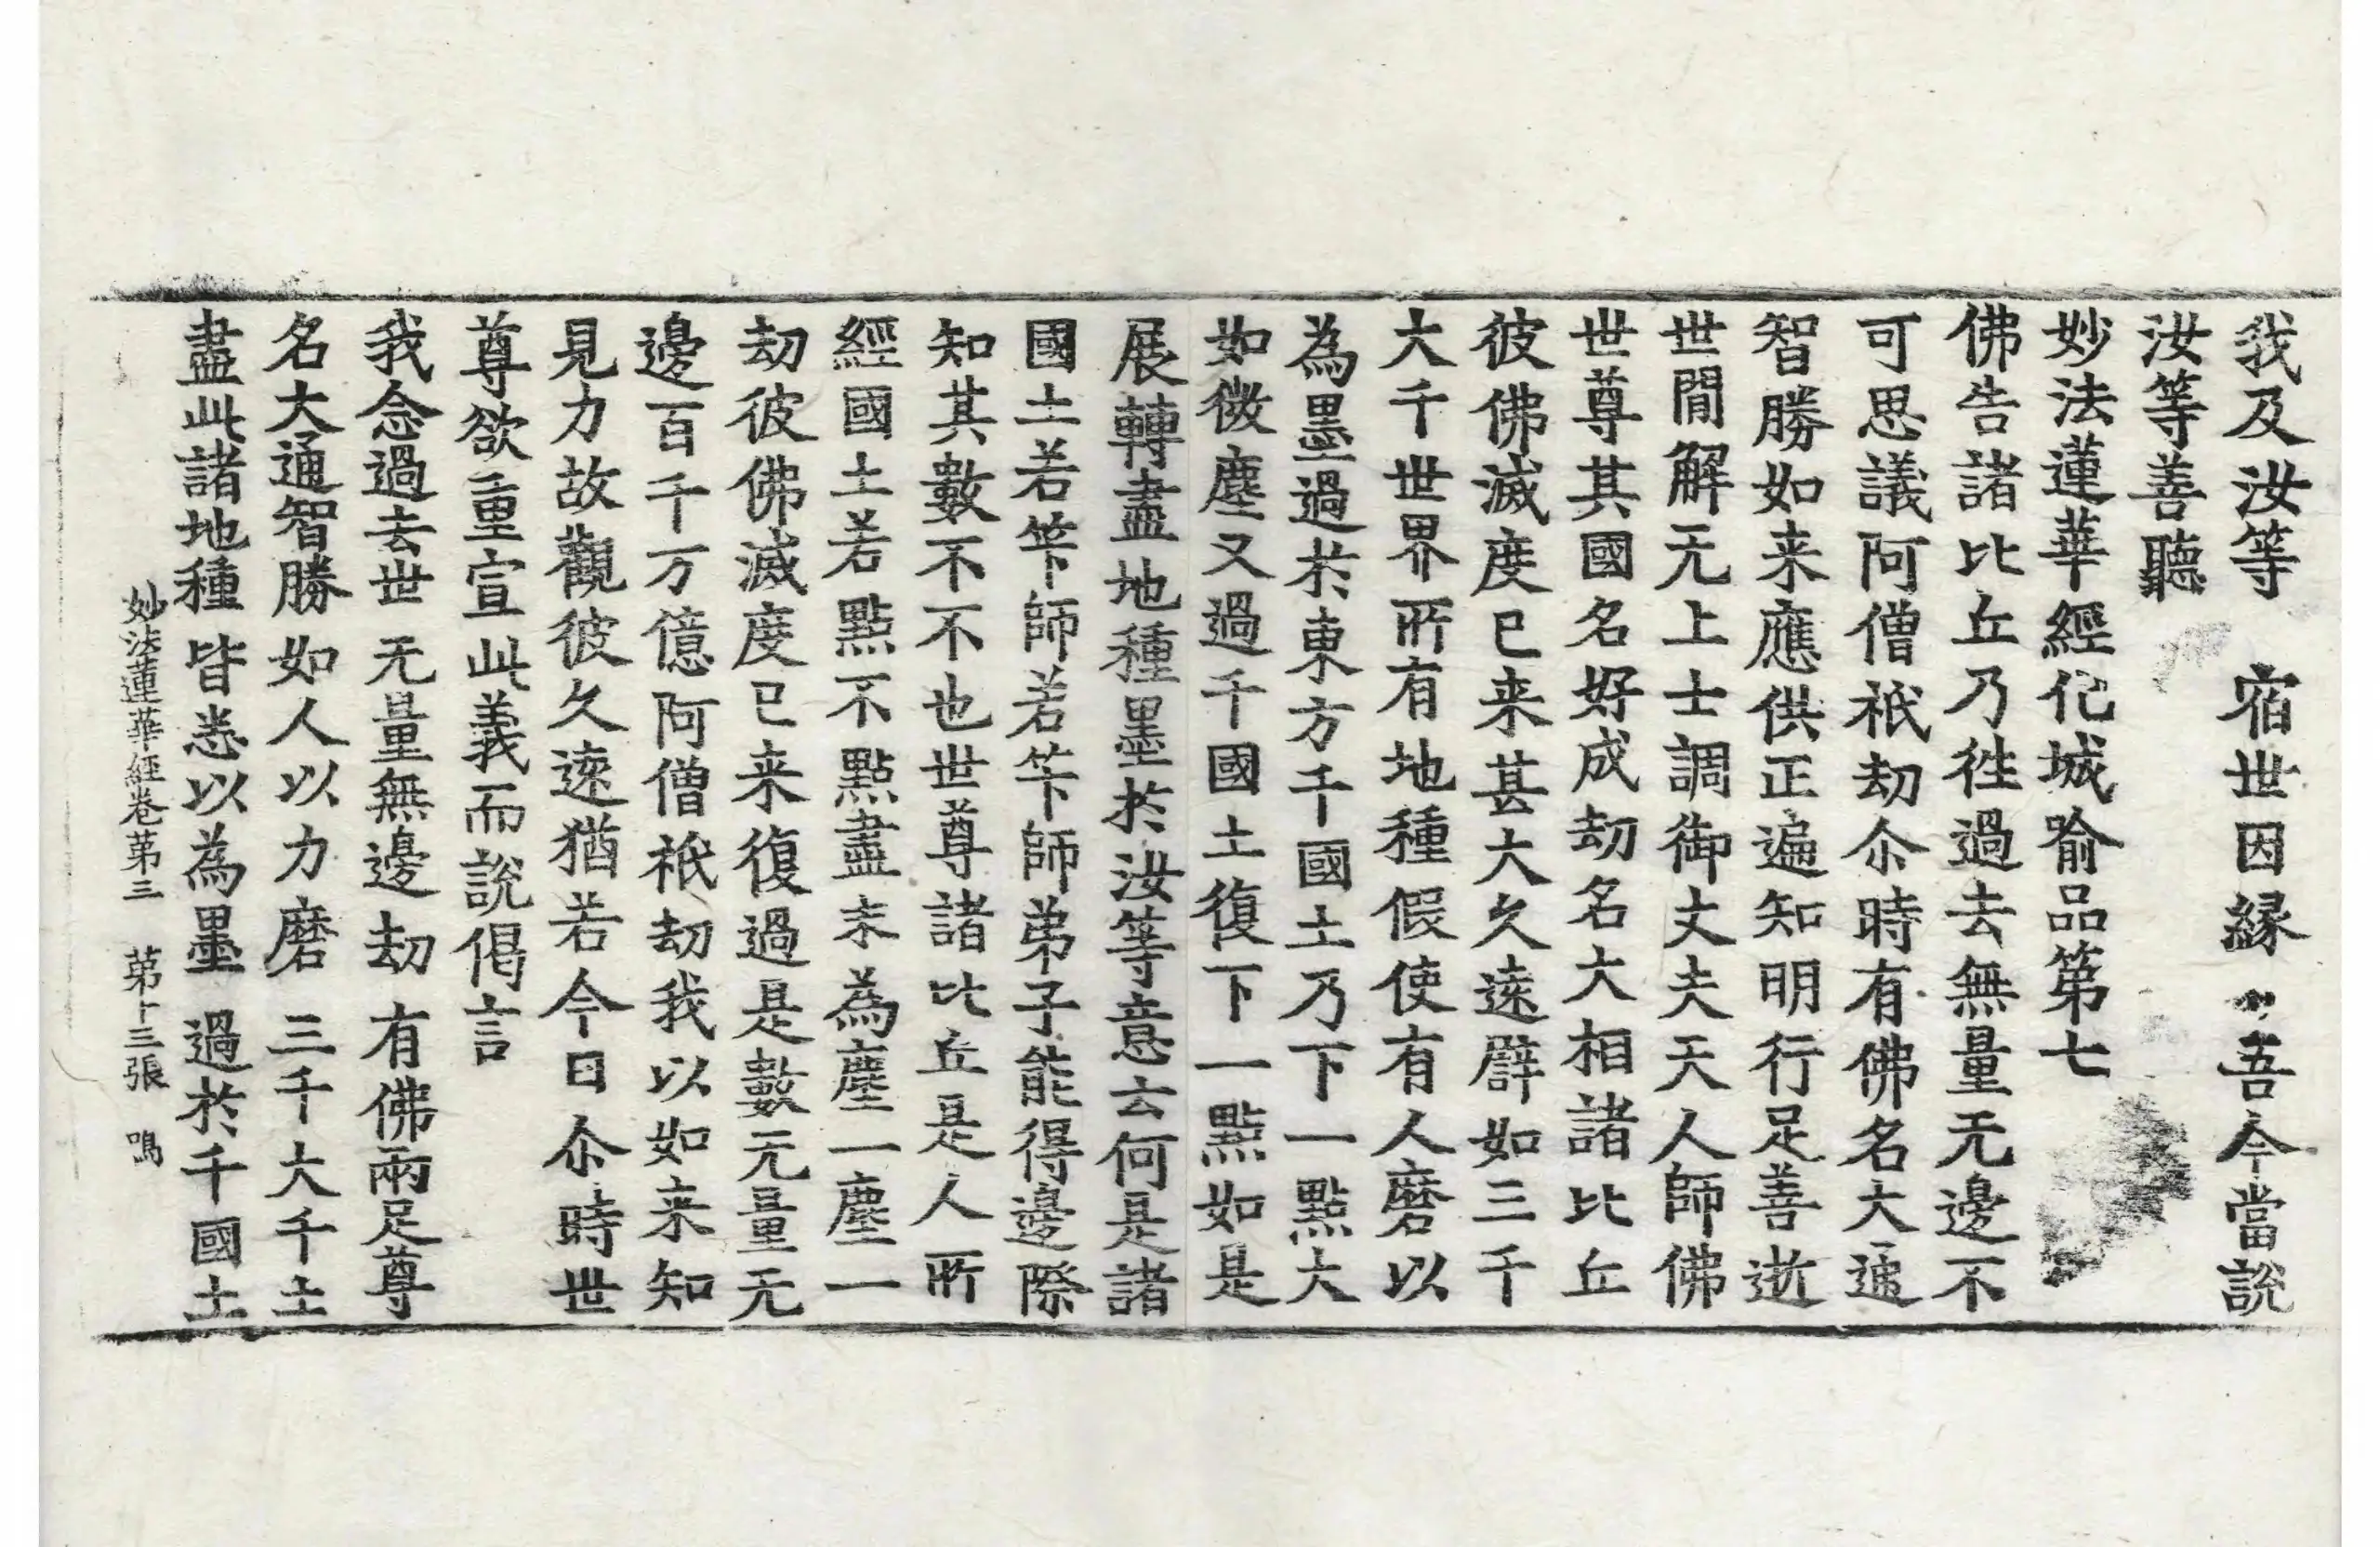 我及汝等　宿世因縁　吾今當說
汝等善聽
妙法蓮華經化城喻品第七
佛告諸比丘乃徃過去無量无邊不
可思議阿僧祇劫尒時有佛名大通
智勝如来應供正遍知明行足善逝
世閒解无上士調御丈夫天人師佛
世尊其國名好成劫名大相諸比丘
彼佛滅度已来甚大久遠譬如三千
大千世界所有地種假使有人磨以
為墨過於東方千國土乃下一點大
如微塵又過千國土復下一點如是
展轉盡地種墨於汝等意云何是諸
國土若筭師若筭師弟子能得邊際
知其數不不也世尊諸比丘是人所
經國土若點不點盡末為塵一塵一
劫彼佛滅度已来復過是數无量无
邊百千万億阿僧祇劫我以如来知
見力故觀彼久遠猶若今日尒時世
尊欲重宣此義而說偈言
我念過去世　无量無邊劫　有佛兩足尊
名大通智勝　如人以力磨　三千大千土
盡此諸地種　皆悉以為墨　過於千國土
妙法蓮華經卷第三　第十三張　鳴